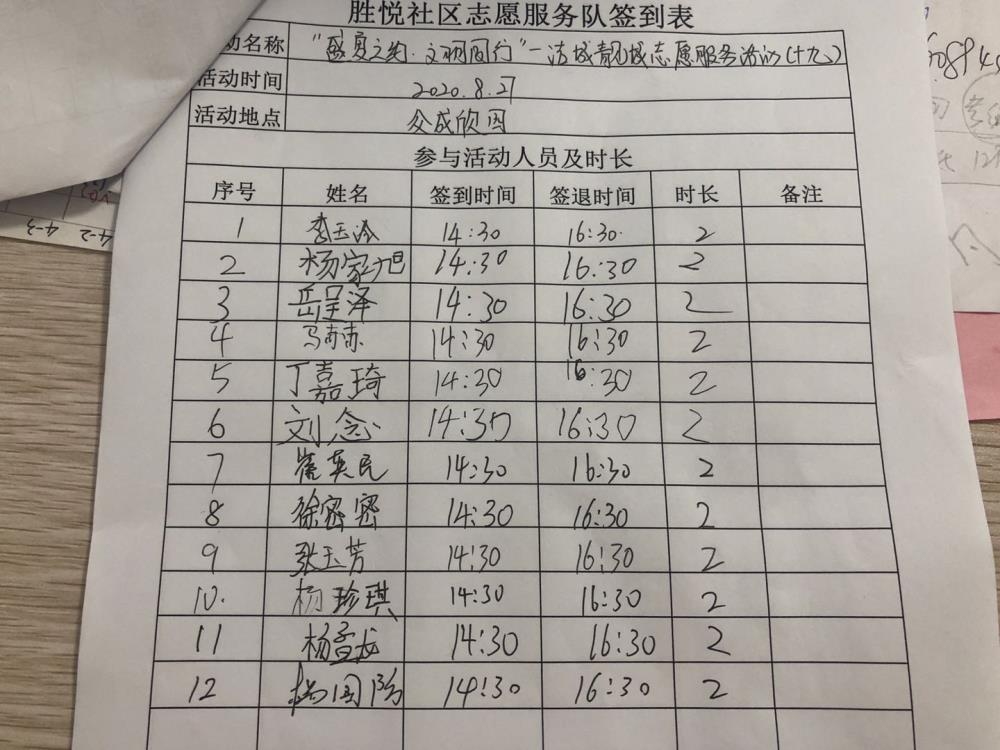 胜悦社区志愿服务队签到表
动名称 "盛夏之约·文明同行"-洁城靓城志愿服务活动(十九)
活动时间 2020.8.27
活动地点 众成欣园
参与活动人员及时长
序号 姓名 签到时间 签退时间 时长 备注
1 李玉玲 14:30 16:30 2
2 杨家旭 14:30 16:30 2
3 岳呈泽 14:30 16:30 2
4 马苗苗 14:30 16:30 2
5 丁嘉琦 14:30 16:30 2
6 刘念 14:30 16:30 2
7 崔英民 14:30 16:30 2
8 徐密密 14:30 16:30 2
9 张玉芳 14:30 16:30 2
10. 杨珍琪 14:30 16:30 2
11 杨孟龙 14:30 16:30 2
12 杨国防 14:30 16:30 2
4-2
4-3